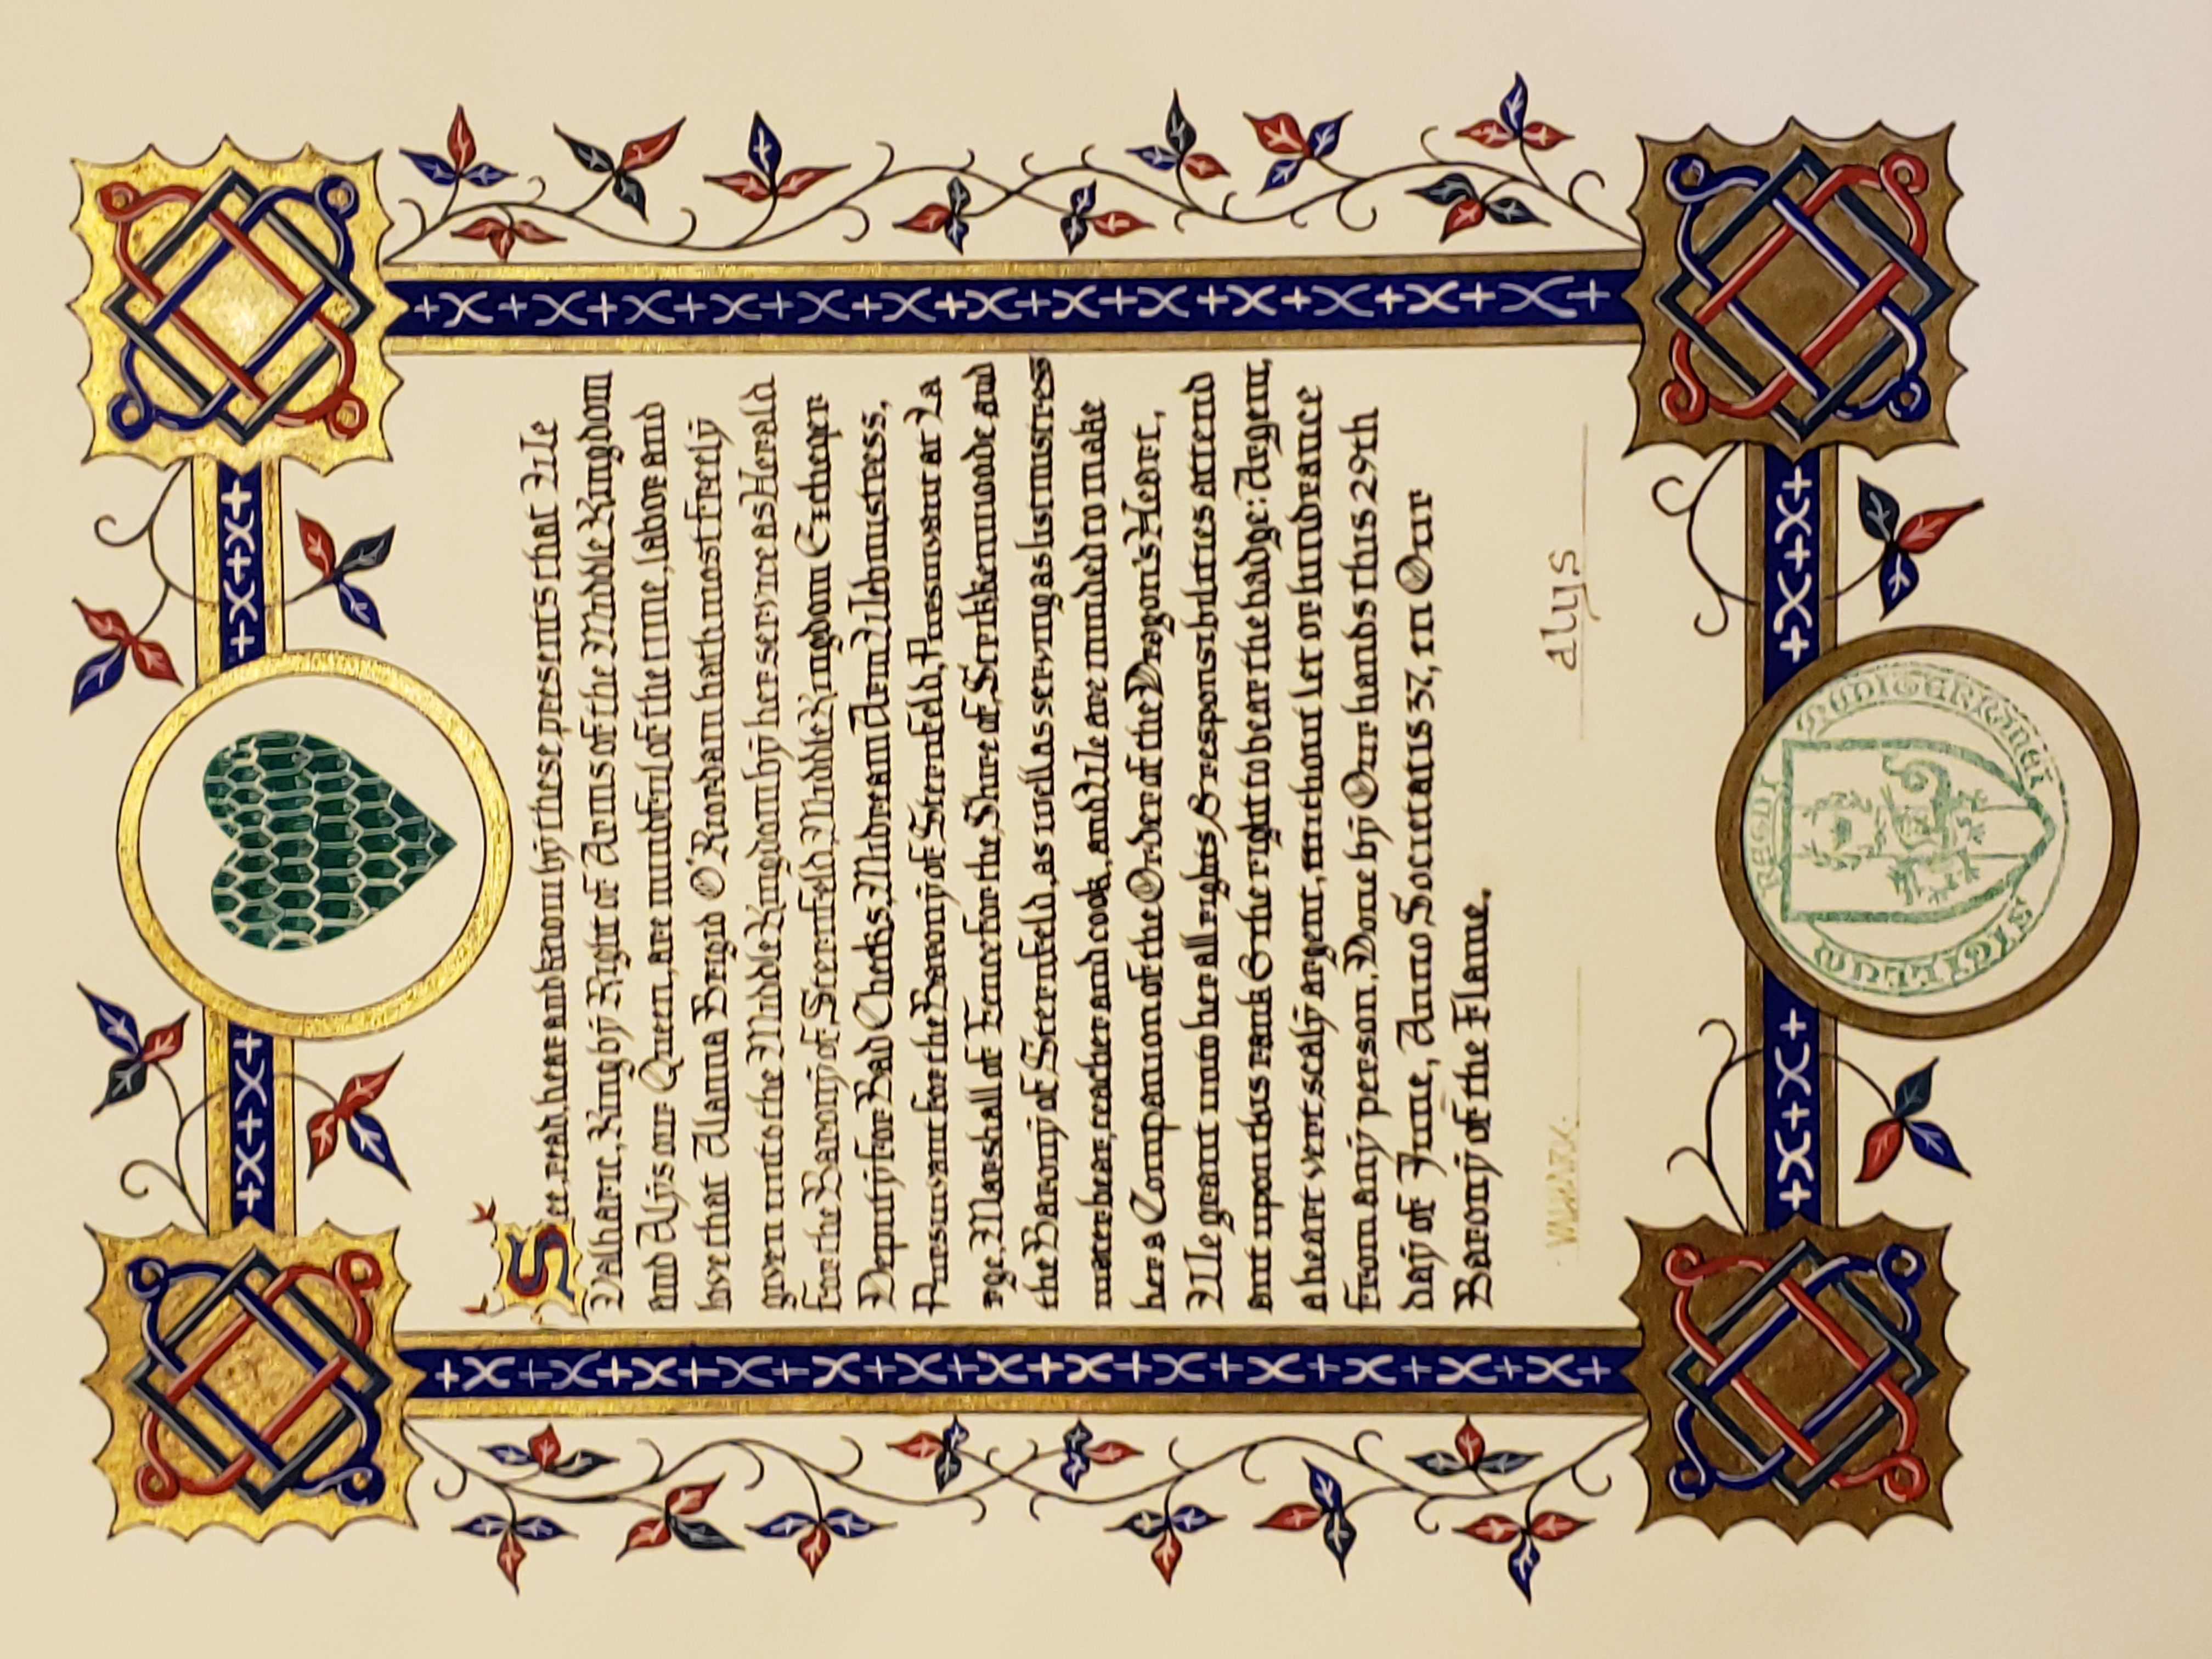 See, read, hear and know by these presents that We
Valharic, King by Right of Arms of the Middle Kingdom
and Alys our Queen, are mindful of the time, labor and
love that Alanna Brigid O'Riordain hath most freely
given unto the Middle Kingdom by her service as Herald
for the Barony of Sternfeld, Middle Kingdom Exchequer
Deputy for Bad Checks, Midrealm Armi Webmistress,
Pursuivant for the Barony of Sternfeld, Pursuivant at La
rge, Marshall of Fence for the Shire of Strikkenwoode, and
the Barony of Sternfeld, as well as serving as listmistress
water bearer, teacher and cook, and We are minded to make
her a Companion of the Order of the Dragon's Heart,
We grant unto her all rights & responsibilities attend
ant upon this rank & the right to bear the badge: Argent,
a heart vert scaly argent, without let or hindrance
from any person. Done by Our hands this 29th
day of June, Anno Societatis 37, in Our
Barony of the Flame.
alys
SIGILLUM REGNI